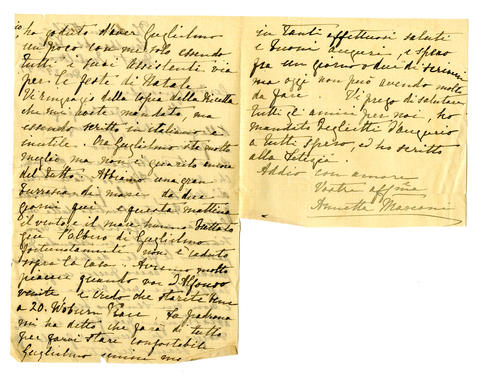 ho goduto d'aver Guglielmo
un poco con me solo essendo
tutti i suoi assistenti via
per le feste di Natale.
Vi ringrazio della copia della Ricetta
che mi avete mandato, ma
essendo scritto in italiano è
inutile. Ora Guglielmo sta molto
meglio ma non è guarito ancora
del tutto. Abbiamo una gran
burrasca di mare da due
giorni qui e questa mattina
il vento e il mare hanno buttato
giù l'albero di Guglielmo
fortunatamente non è caduto
sopra la casa. Avremo molto
piacere quando voi e Alfonso
venite, e credo che starete bene
a 20. Woburn Place. La padrona
mi ha detto che farà di tutto
per farvi stare confortabili
Guglielmo
in tanti affettuosi saluti
e buoni auguri, e spero
fra un giorno o due di scrivervi
ma oggi non può avendo molto
da fare. Vi prego di salutare
tutti gli amici per noi, ho
mandato biglietti d'augurio
a tutti spero, ed ho scritto
alla
Addio con amore
Vostra affma
Annetta Marconi